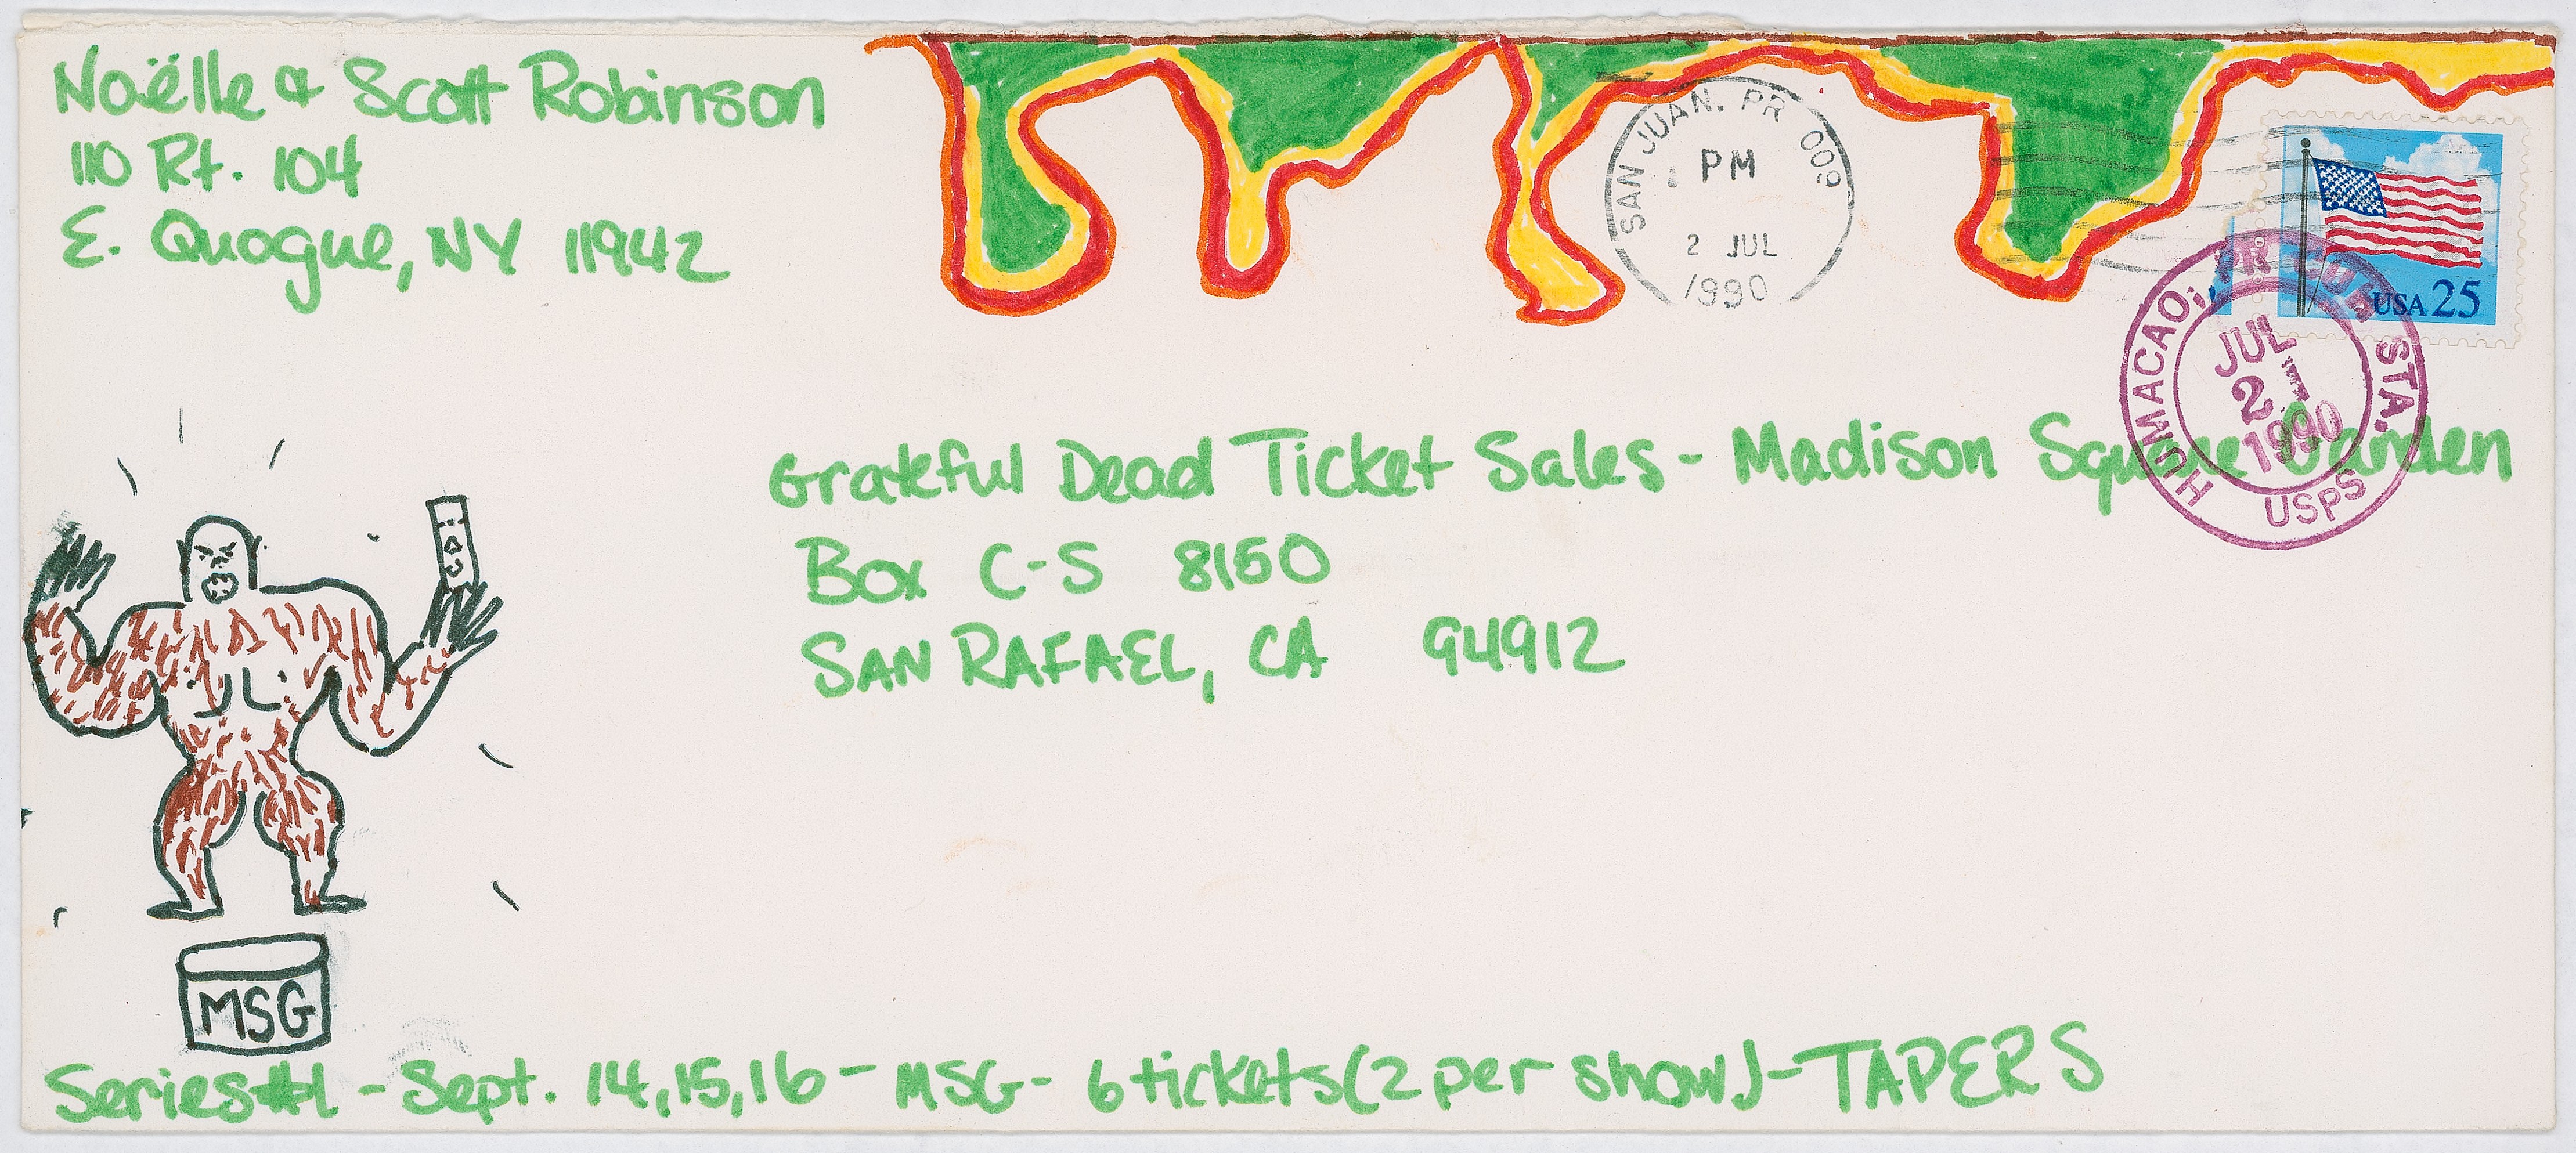 Noëlle & Scott Robinson
110 Rt. 104
E. Quogue, NY 11942
SAN JUAN. PR 009
PM
2 JUL
1990
USA 25
HUMACAO, PR STA.
JUL
21
1990
USPS
Grateful Dead Ticket Sales - Madison Square Garden
Box C-S 8150
SAN RAFAEL, CA 94912
MSG
Series #1 - Sept. 14,15,16 - MSG - 6 tickets (2 per show) - TAPERS